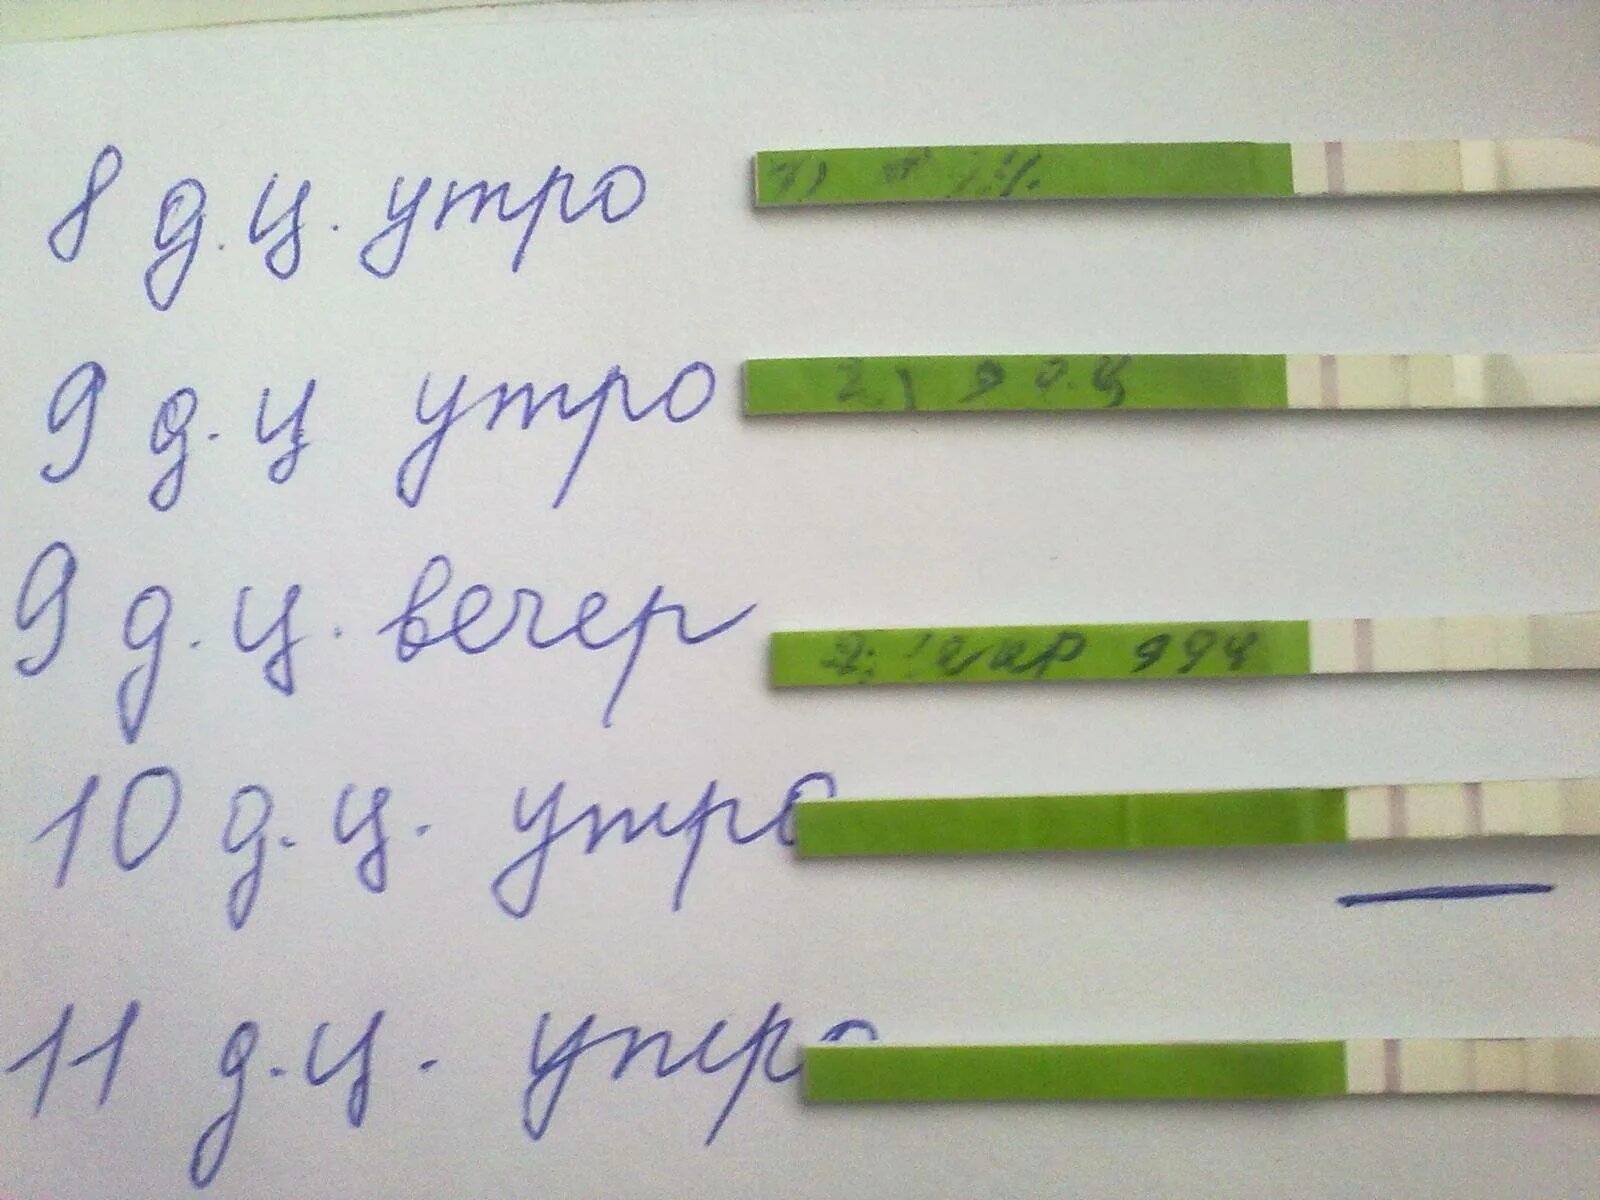 8 д.ц. утро
9 д.ц утро
2) 9 д.ц
9 д.ц. вечер
10 д.ц. утро
11 д.ц. утро